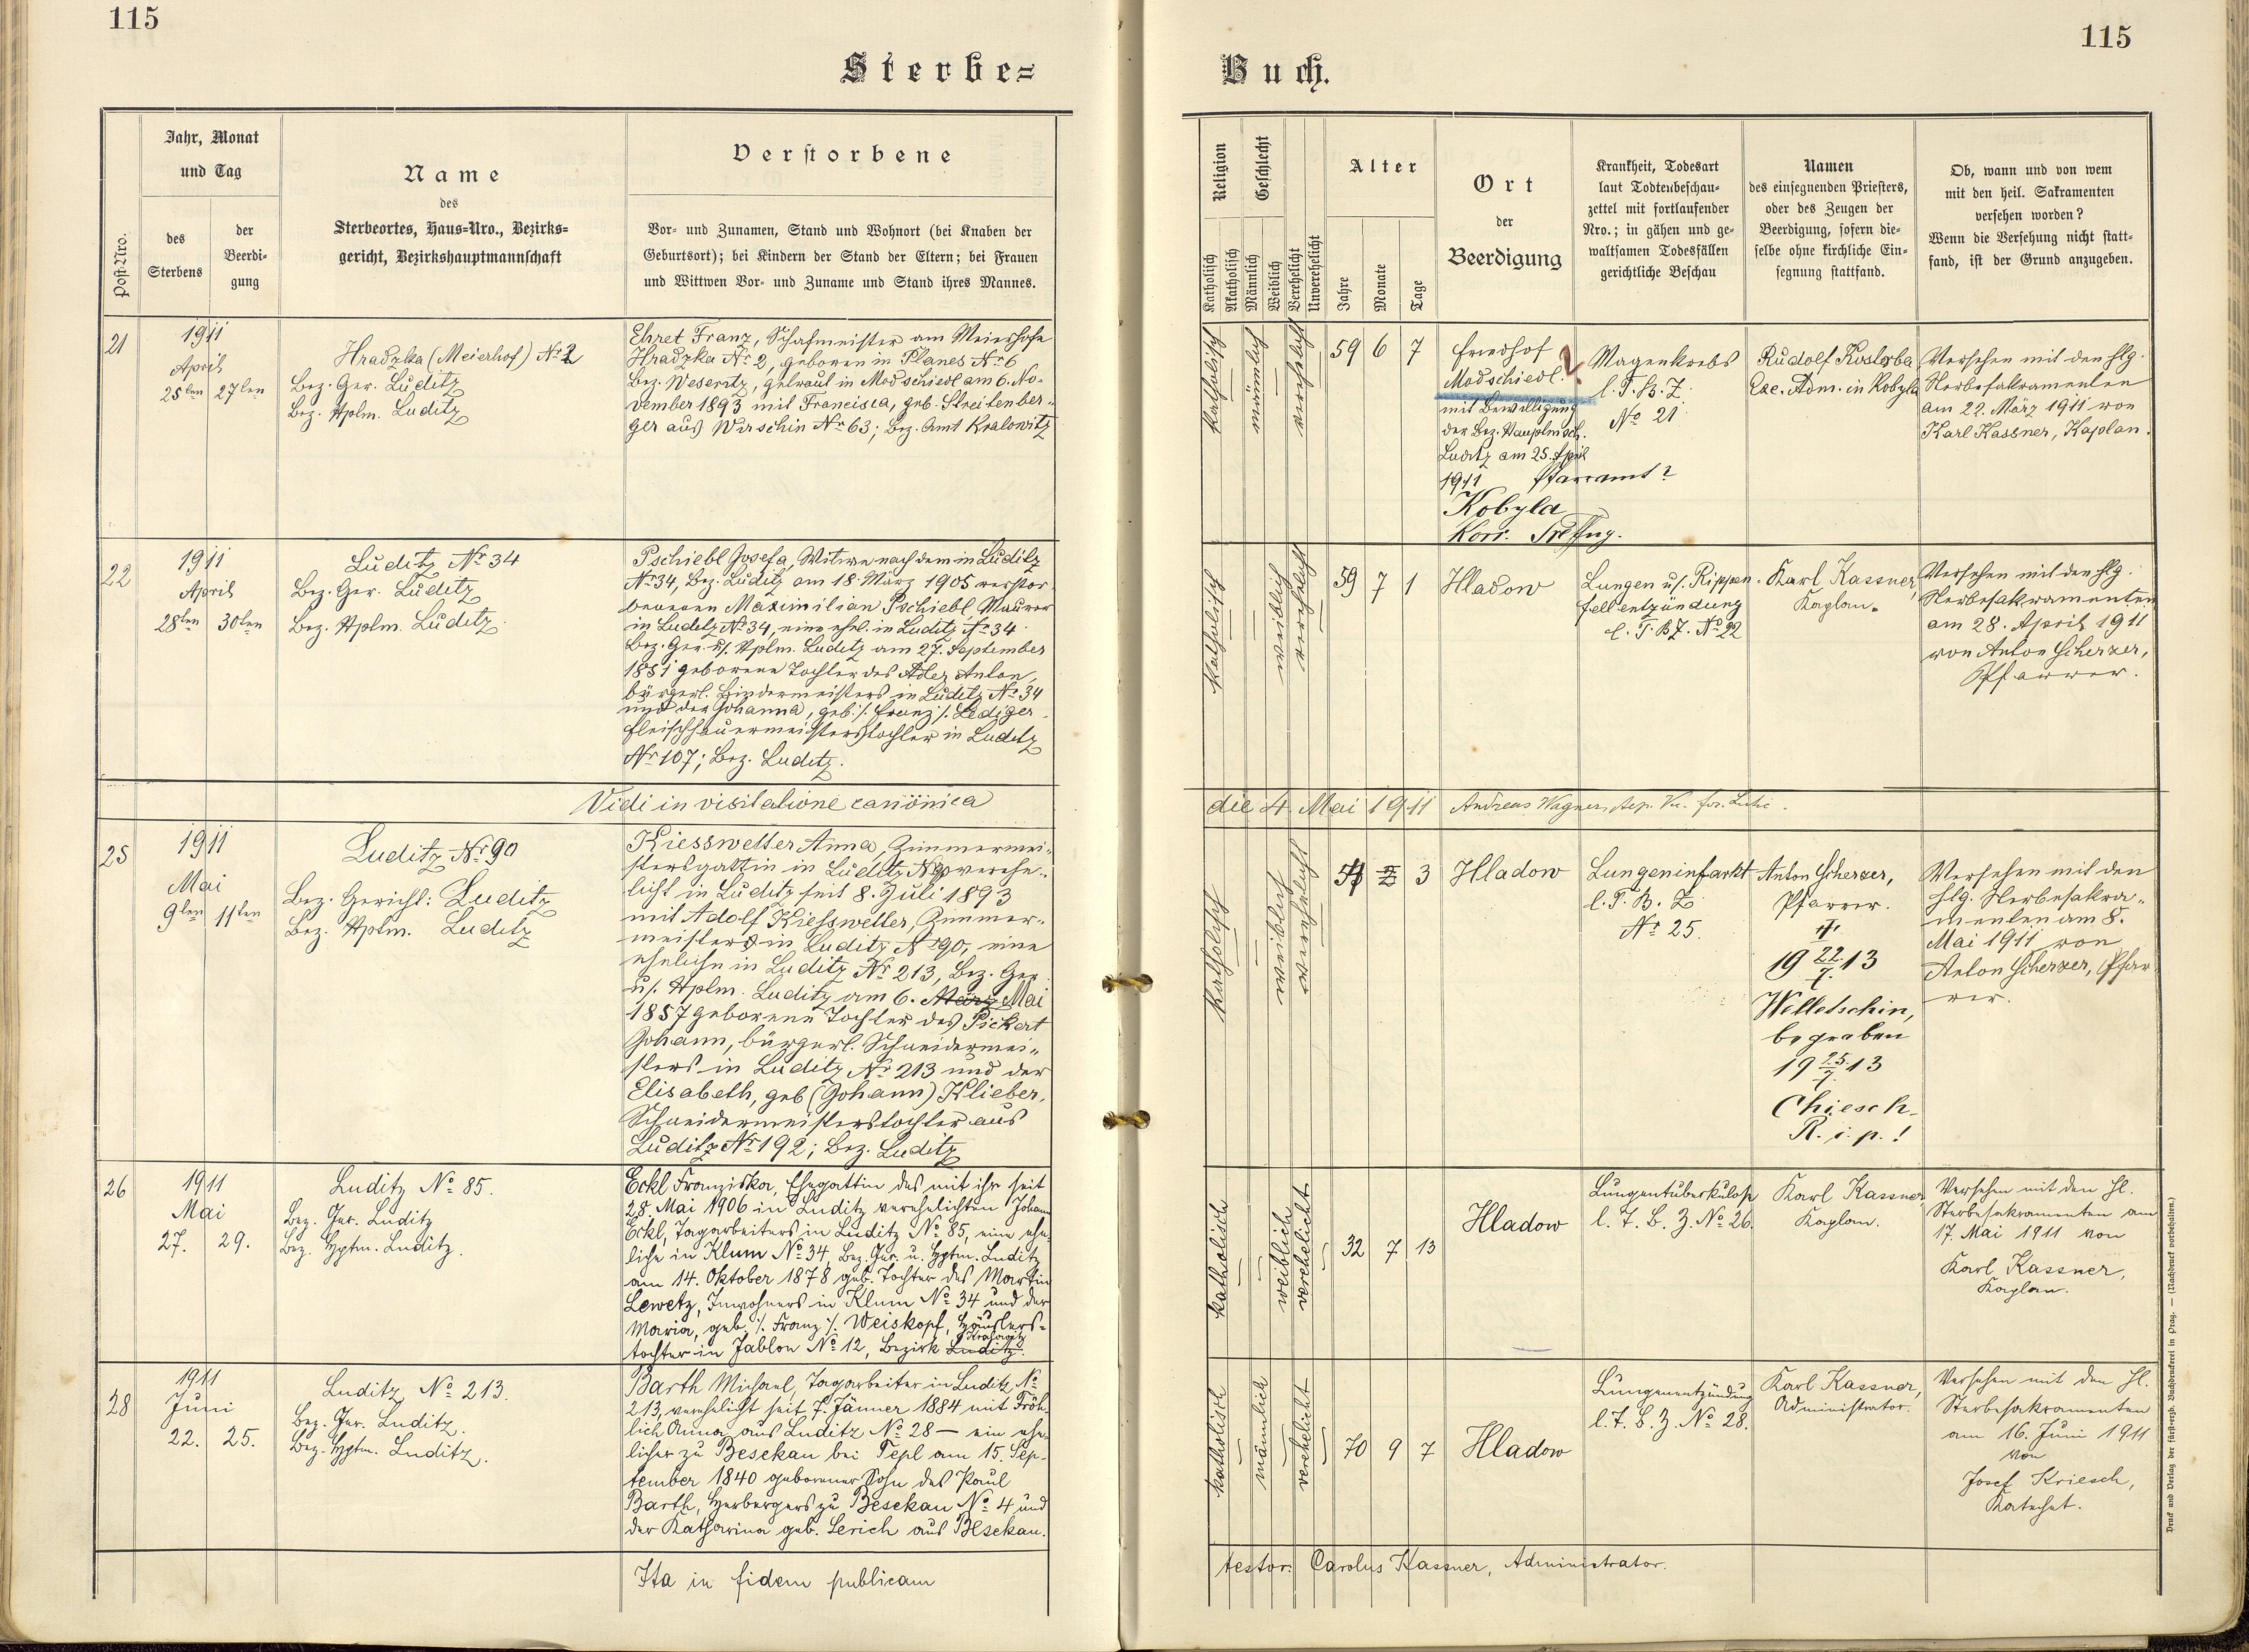 115
115
Sterbe=
Buch.
Post-Nro.
Jahr, Monat
und Tag
des
Sterbens
der
Beerdi-
gung
Name
des
Sterbeortes, Haus-Nro., Bezirks-
gericht, Bezirkshauptmannschaft
Verstorbene
Vor- und Zunamen, Stand und Wohnort (bei Knaben der
Geburtsort); bei Kindern der Stand der Eltern; bei Frauen
und Wittwen Vor- und Zuname und Stand ihres Mannes.
Religion
Katholisch
Akatholisch
Geschlecht
Männlich
Weiblich
Verehelicht
Unverehelicht
Alter
Jahre
Monate
Tage
Ort
der
Beerdigung
Krankheit, Todesart
laut Todtenbeschau-
zettel mit fortlaufender
Nro.; in gähen und ge-
waltsamen Todesfällen
gerichtliche Beschau
Namen
des einsegnenden Priesters,
oder des Zeugen der
Beerdigung, sofern die-
selbe ohne kirchliche Ein-
segnung stattfand.
Ob, wann und von wem
mit den heil. Sakramenten
versehen worden?
Wenn die Versehung nicht statt-
fand, ist der Grund anzugeben.
21
1911
April
25ten 27ten
Hradzka (Meierhof) Nr 2
Bez. Ger. Luditz
Bez. Hptm. Luditz
Ehret Franz, Schafmeister am Meierhofe
Hradzka Nr 2, geboren in Planes Nr 6
Bez. Weseritz, getraut in Modschiedl am 6. No-
vember 1893 mit Francisca, geb. Streitenber-
ger aus Wirschin Nr 63; Bez. Amt Kralowitz
katholisch
männlich
verehelicht
59 6 7
Friedhof
Modschiedl.
mit Bewilligung
der Bez. Hauptmsch.
Luditz am 25. April
1911 Pfarramt?
Kobyla
Korr.
Magenkrebs
l. T. B. Z.
No 21
Rudolf Kosterba
Exc. Adm. in Kobyla
Versehen mit den hlg.
Sterbesakramenten
am 22. März 1911 von
Karl Kassner, Kaplan.
22
1911
April
28ten 30ten
Luditz Nr 34
Bez. Ger. Luditz
Bez. Hptm. Luditz
Pschiebl Josefa, Witwe nach dem in Luditz
Nr 34, Bez. Luditz am 18. März 1905 verstor-
benen Maximilian Pschiebl Maurer
in Luditz Nr 34, eine ehel. in Luditz Nr 34
Bez. Ger. u. Hptm. Luditz am 27. September
1851 geborene Tochter des Adler Anton,
bürgerl. Bindermeisters in Luditz Nr 34
und der Johanna, geb. /: Franz :/ Lediger
Fleischhauermeisterstochter in Luditz
Nr 107; Bez. Luditz.
katholisch
weiblich
verehelicht
59 7 1
Hladow
Lungen u. Rippen-
fellentzündung
l. T. B. Z. No 22
Karl Kassner,
Kaplan.
Versehen mit den hlg.
Sterbesakramenten
am 28. April 1911
von Anton Scherzer,
Pfarrer.
Vidi in visitatione canonica
die 4. Mai 1911 Andreas Wagner,
25
1911
Mai
9ten 11ten
Luditz Nr 90
Bez. Gericht: Luditz
Bez. Hptm. Luditz
Kiesswetter Anna, Zimmermei-
stersgattin in Luditz N 90 verehe-
licht in Luditz seit 8. Juli 1893
mit Adolf Kiesswetter, Zimmer-
meisters in Luditz Nr 90, eine
eheliche in Luditz Nr 213, Bez. Ger.
u. Hptm. Luditz am 6. März Mai
1857 geborene Tochter des Pickert
Johann, bürgerl. Schneidermei-
sters in Luditz Nr 213 und der
Elisabeth, geb (Johann) Klieber,
Schneidermeisterstochter aus
Luditz Nr 192; Bez. Luditz
katholisch
weiblich
verehelicht
3
Hladow
Lungeninfarkt
l. T. B. Z
Nr 25.
Anton Scherzer,
Pfarrer.
†
19 22/7. 13
Welletschin,
begraben
19 25/7. 13
Chiesch.
R. i. p.!
Versehen mit den
hlg. Sterbesakra-
menten am 8.
Mai 1911 von
Anton Scherzer, Pfar-
rer.
26
1911
Mai
27. 29.
Luditz No 85.
Bez. Ger. Luditz
Bez. Hptm. Luditz.
Eckl Franziska, Ehegattin des mit ihr seit
28. Mai 1906 in Luditz verehelichten Johann
Eckl, Tagarbeiters in Luditz No 85, eine ehe-
liche in Klum No 34, Bez. Ger. u. Hptm. Luditz
am 14. Oktober 1878 geb. Tochter des Martin
Lewetz, Inwohners in Klum No 34 und der
Maria, geb. /: Franz :/ Weiskopf, Häuslers-
tochter in Jablon No 12, Bezirk Luditz.
katholisch
weiblich
verehelicht
32 7 13
Hladow
Lungentuberkulose
l. T. B. Z. No 26.
Karl Kassner
Kaplan.
Versehen mit den hl.
Sterbesakramenten am
17. Mai 1911 von
Karl Kassner,
Kaplan.
28
1911
Juni
22. 25.
Luditz No 213.
Bez. Ger. Luditz.
Bez. Hptm. Luditz.
Barth Michael, Tagarbeiter in Luditz No
213, verehelicht seit 7. Jänner 1884 mit Fröh-
lich Anna aus Luditz No 28 — ein ehe-
licher zu Besekau bei Tepl am 15. Sep-
tember 1840 geborener Sohn des Paul
Barth, Herbergers zu Besekau No 4 und
der Katharina geb. Lerich aus Besekau.
katholisch
männlich
verehelicht
70 9 7
Hladow
Lungenentzündung
l. T. B. Z. No 28.
Karl Kassner,
Administrator.
Versehen mit den hl.
Sterbesakramenten
am 16. Juni 1911
von
Josef Kriesch,
Katechet.
Ita in fidem publicam
testor: Carolus Kassner, Administrator.
Druck und Verlag der fürst-erzb. Buchdruckerei in Prag. — (Nachdruck vorbehalten.)